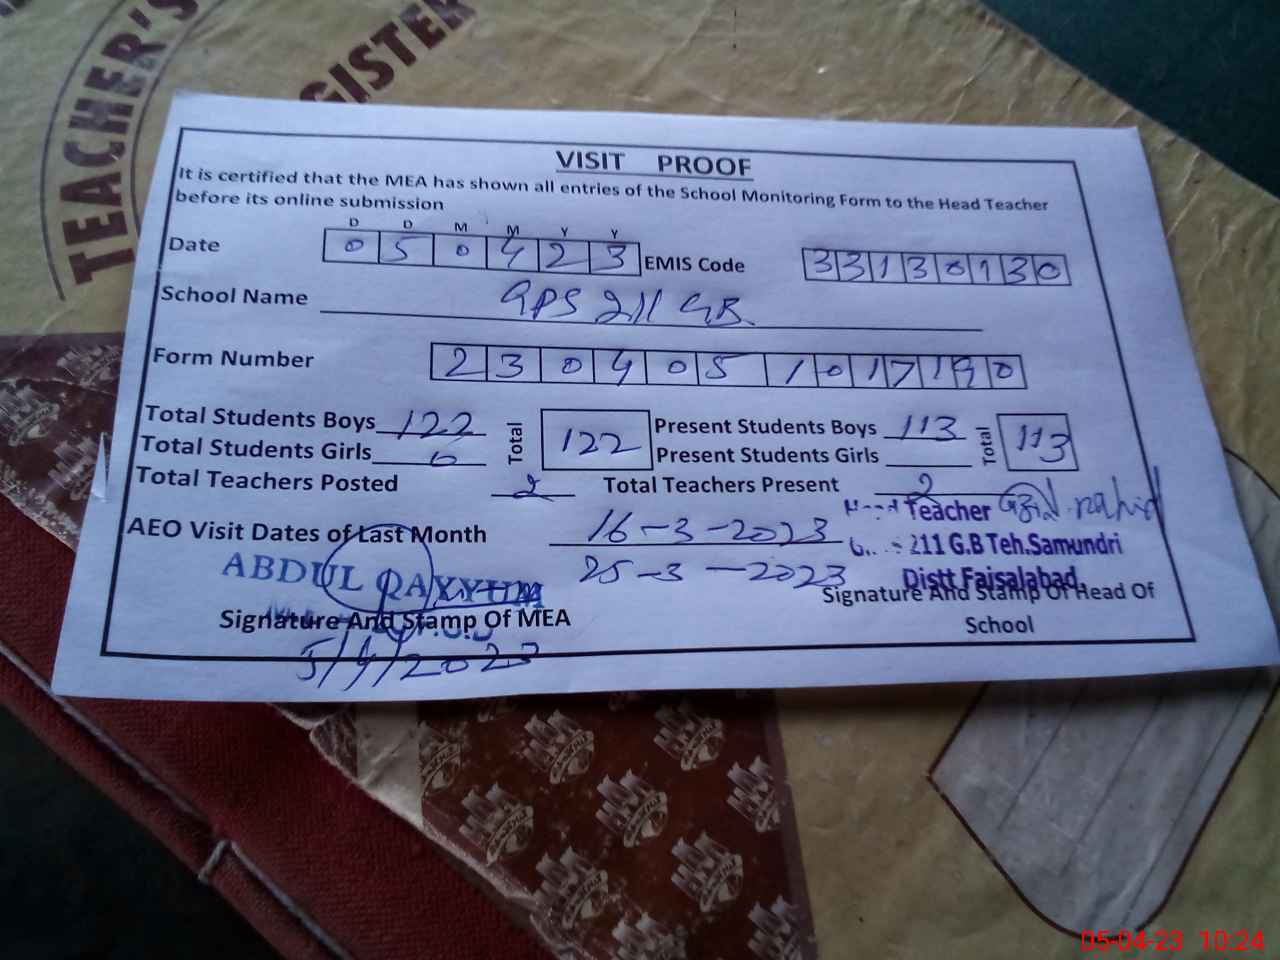 TEACHER'S
REGISTER
VISIT PROOF
It is certified that the MEA has shown all entries of the School Monitoring Form to the Head Teacher
before its online submission
D D M M Y Y
Date 0 5 0 4 2 3 EMIS Code 3 3 1 3 0 1 3 0
School Name GPS 211 GB.
Form Number 2 3 0 4 0 5 1 0 1 7 1 9 0
Total Students Boys 122 Total 122 Present Students Boys 113 Total 113
Total Students Girls 0 Present Students Girls
Total Teachers Posted 2 Total Teachers Present 2
Head Teacher
AEO Visit Dates of Last Month 16-3-2023
211 G.B Teh.Samundri
25-3-2023
Distt Faisalabad
ABDUL QAYYUM
Signature And Stamp Of MEA
Signature And Stamp Of Head Of
School
5/4/2023
05-04-23 10:24